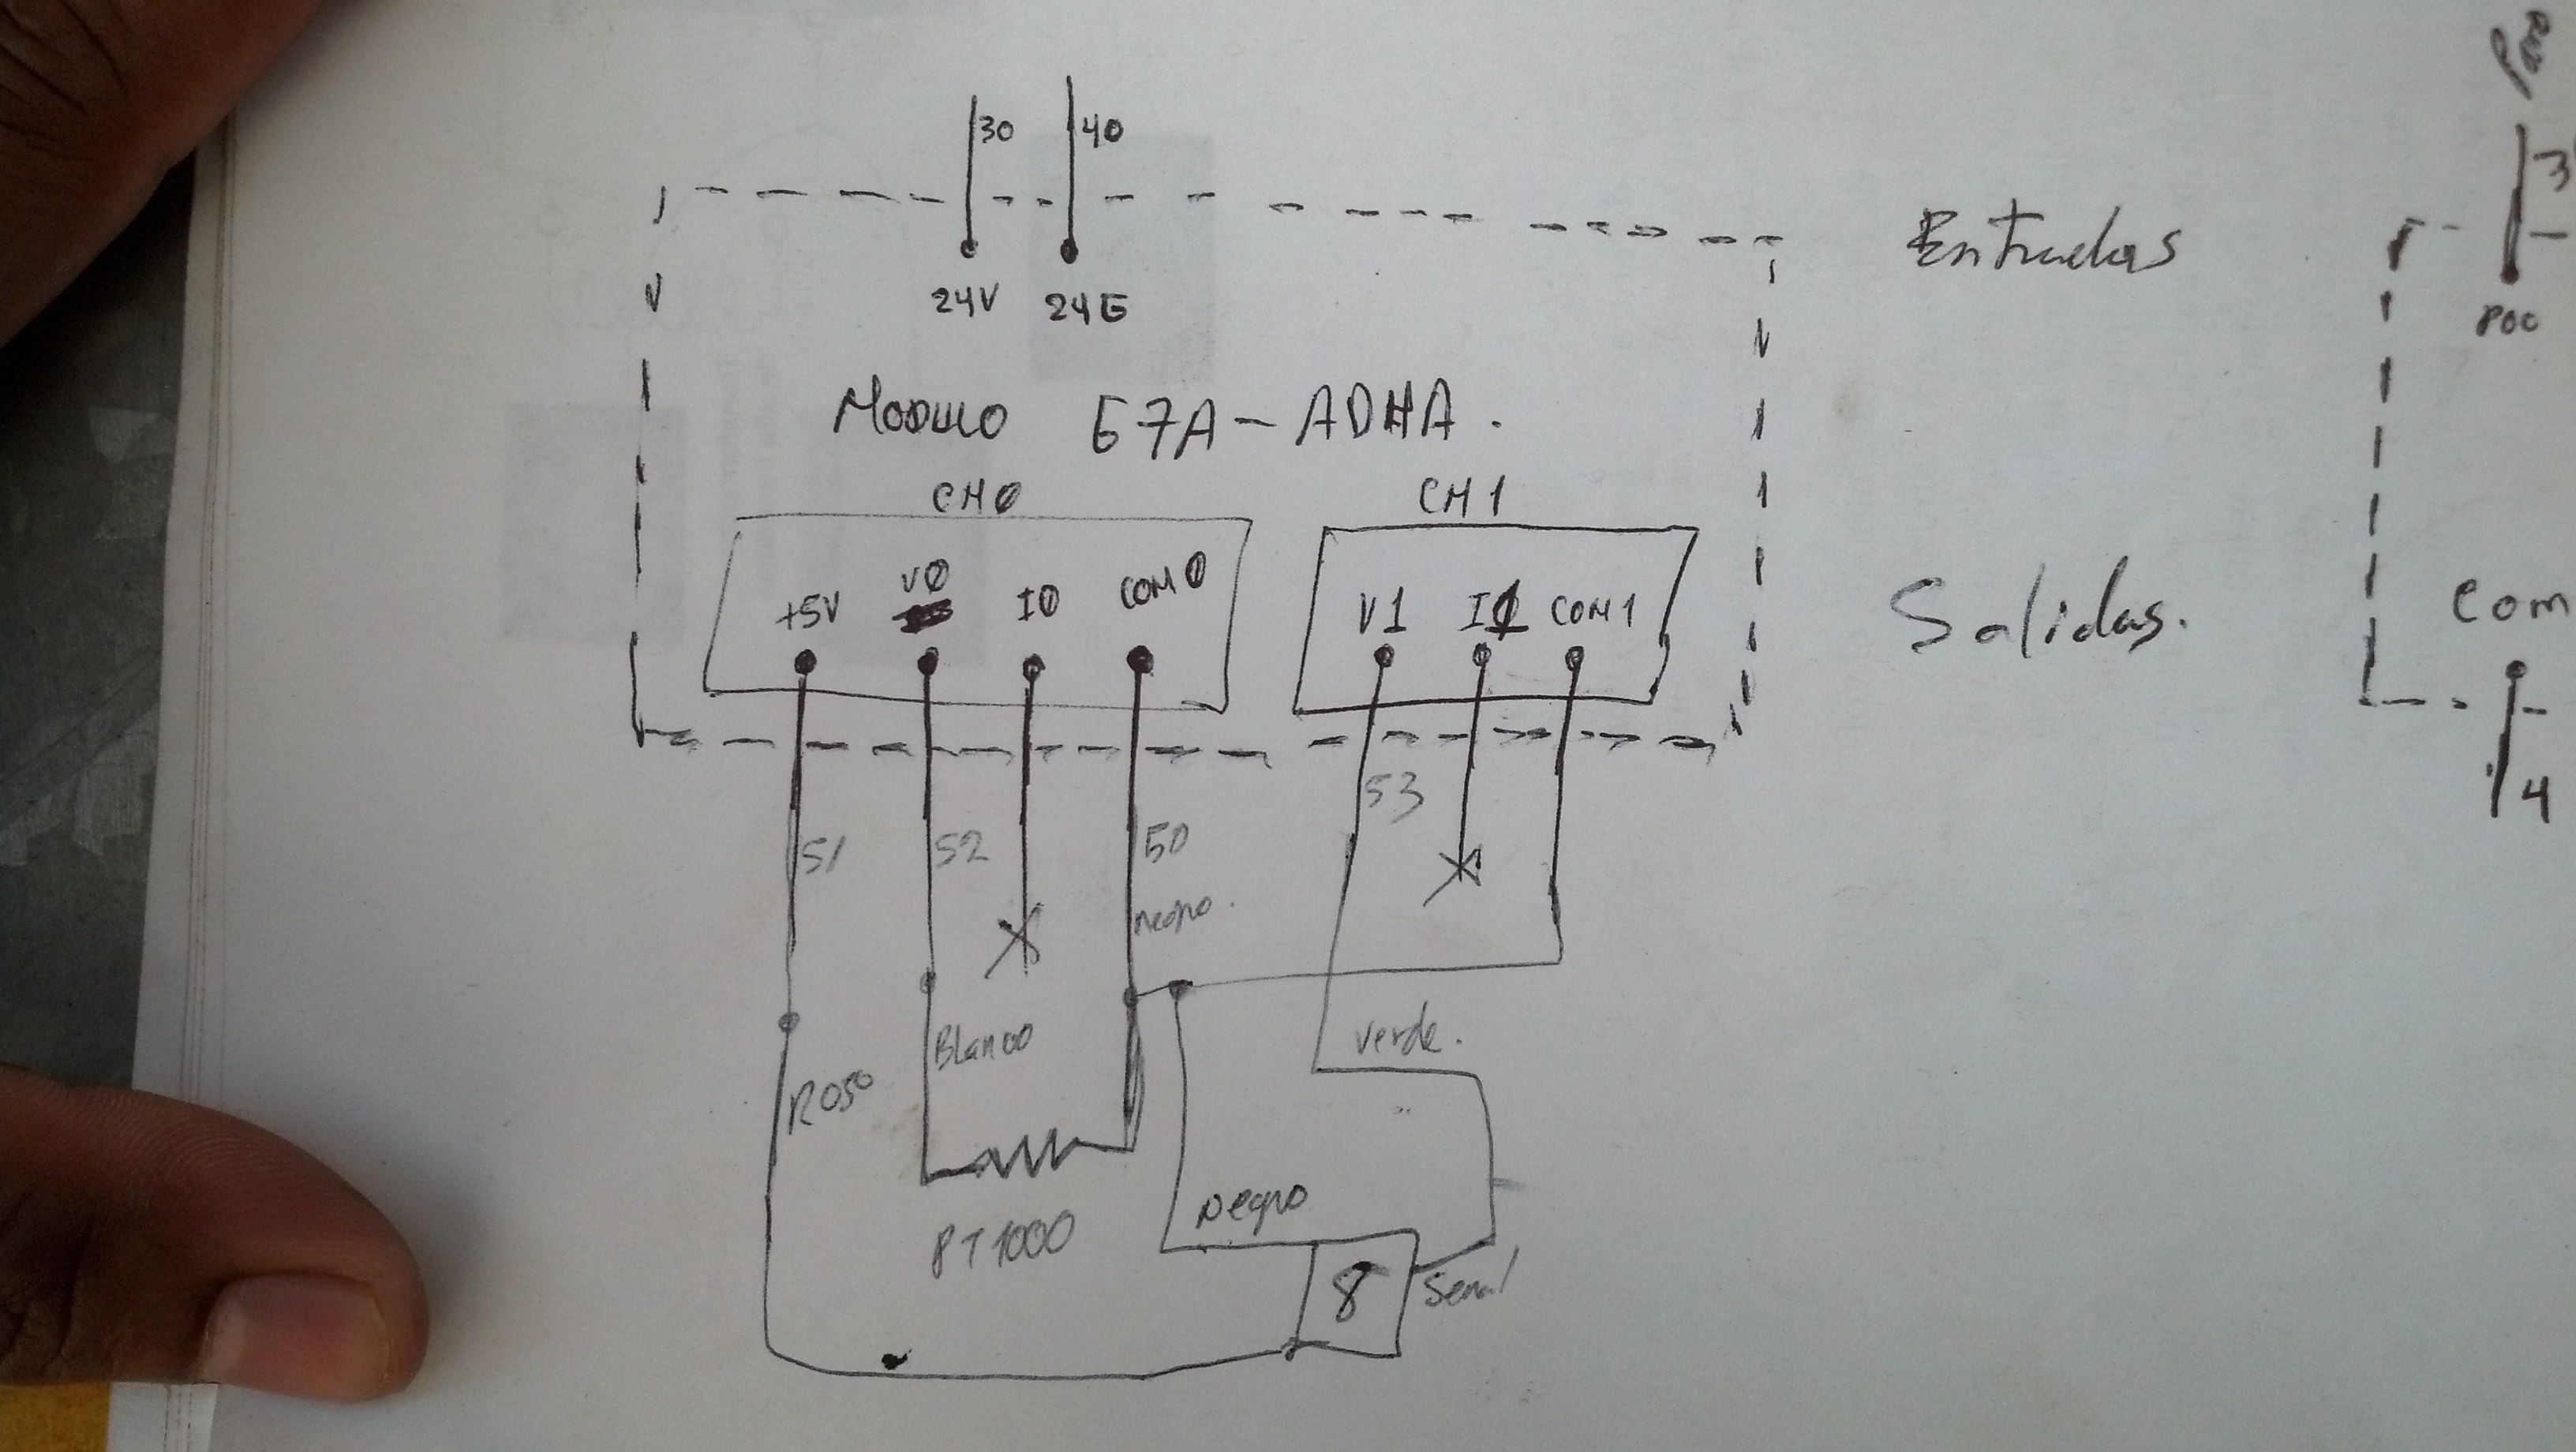 30 40
24V 24G
Entradas
MODULO G7A-ADHA.
CH0 CH1
+5V V0 I0 COM0
V1 I1 COM1
Salidas.
51 52 50 53
negro.
Blanco
Verde.
Rojo
PT1000
Negro
8
Señal
3
P00
com
4